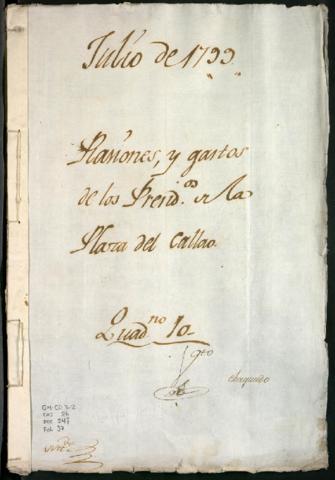 Julio de 1799
Rasiones, y gastos
de los Presid.os de la
Plaza del Callao
Quad.no 10
GM-CO 2-2
CAJ 26
DOC 247
Fol 37